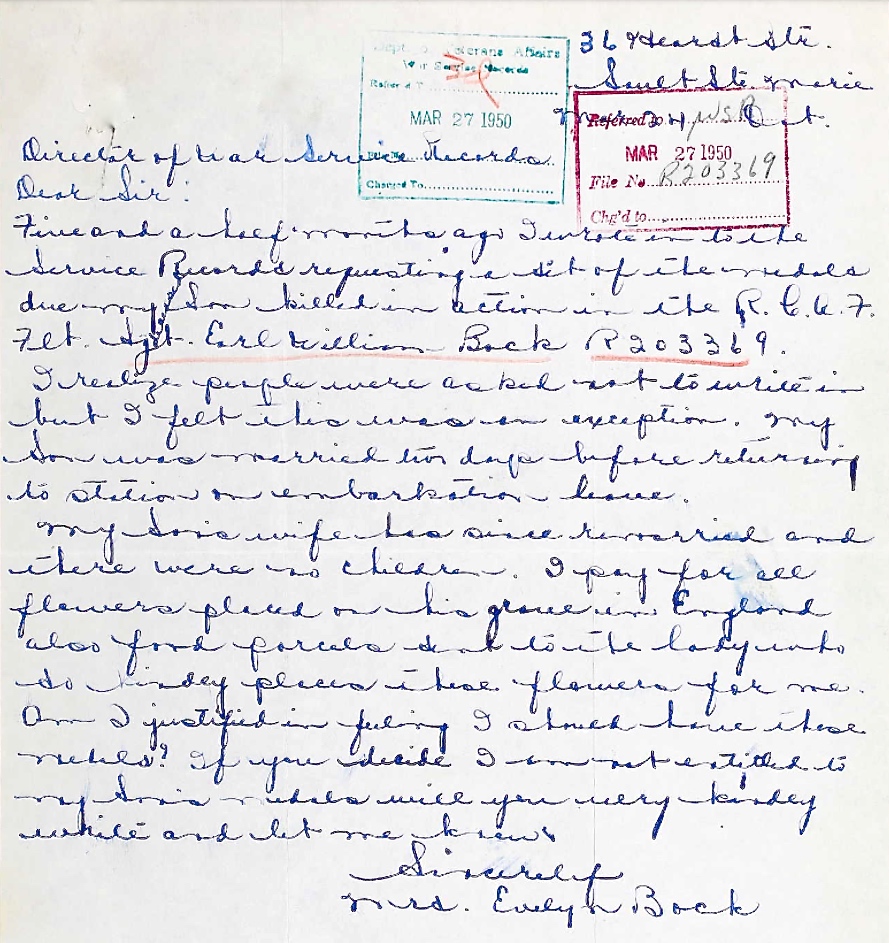 36 Heardt Str.
Sault Ste. Marie
Mar 24 Ont.
Dept. of Veterans Affairs
War Service Records
Referred T
MAR 27 1950
File No.
Charged To
Referred to WSR
MAR 27 1950
File No R203369
Chg'd to
Director of War Service Records.
Dear Sir:
Five and a half months ago I wrote in to the
Service Records requesting a set of the medals
due my son killed in action in the R.C.A.F.
Flt. Sgt. Earl William Bock R203369.
I realize people were asked not to write in
but I felt this was an exception. My
son was married two days before returning
to station on embarkation leave.
My son's wife has since remarried and
there were no children. I pay for all
flowers placed on his grave in England
also food parcels sent to the lady who
so kindey places these flowers for me.
Am I justified in feeling I should have these
medals? If you decide I am not entitled to
my son's medals will you very kindey
write and let me know
Sincerely
Mrs. Evelyn Bock